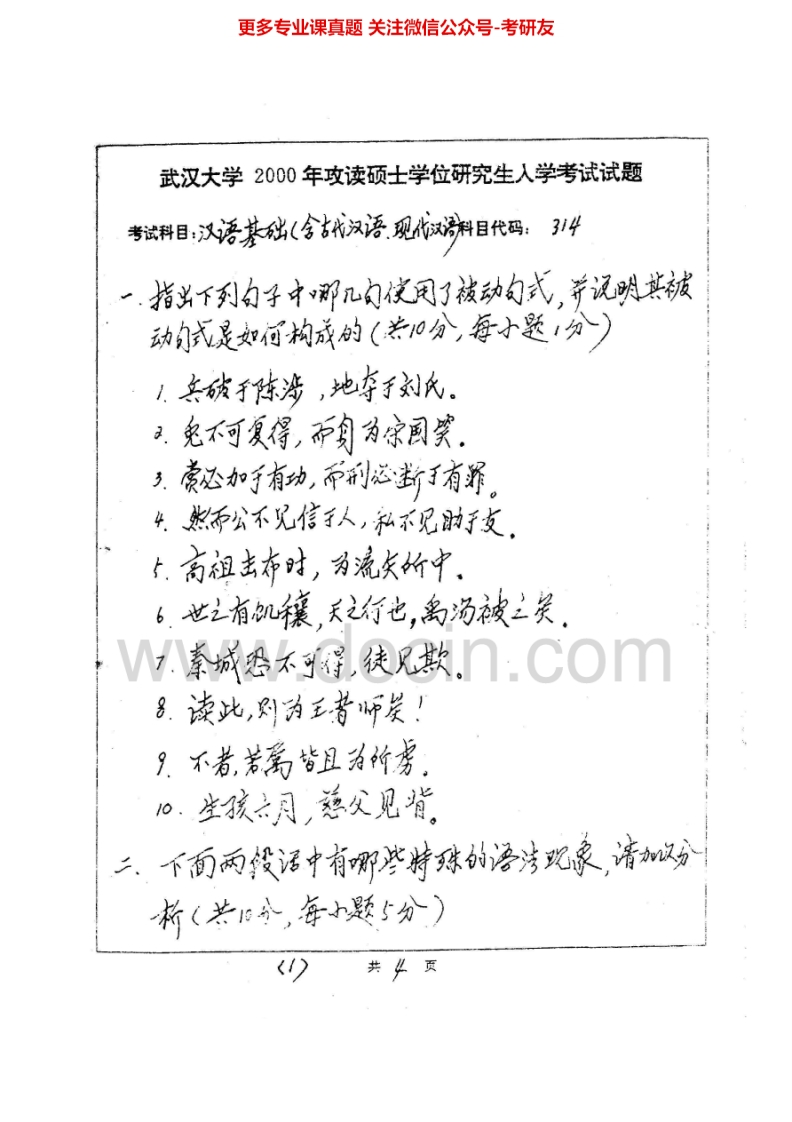 更多专业课真题 关注微信公众号-考研友
武汉大学 2000 年攻读硕士学位研究生入学考试试题
考试科目:汉语基础(含古代汉语、现代汉语)科目代码: 314
一.指出下列句子中哪几句使用了被动句式,并说明其被
动句式是如何构成的(共10分,每小题1分)
1. 兵破于陈涉,地夺于刘氏。
2. 兔不可复得,而身为宋国笑。
3. 赏必加于有功,而刑必断于有罪。
4. 然而公不见信于人,私不见助于友.
5. 高祖击布时,为流矢所中.
6. 世之有饥穰,天之行也,禹汤被之矣.
www.docin.com
7. 秦城恐不可得,徒见欺。
8. 读此,则为王者师矣!
9. 不者,若属皆且为所虏.
10. 生孩六月,慈父见背。
二. 下面两段话中有哪些特殊的语法现象,请加以分
析(共10分,每小题5分)
(1) 共 4 页